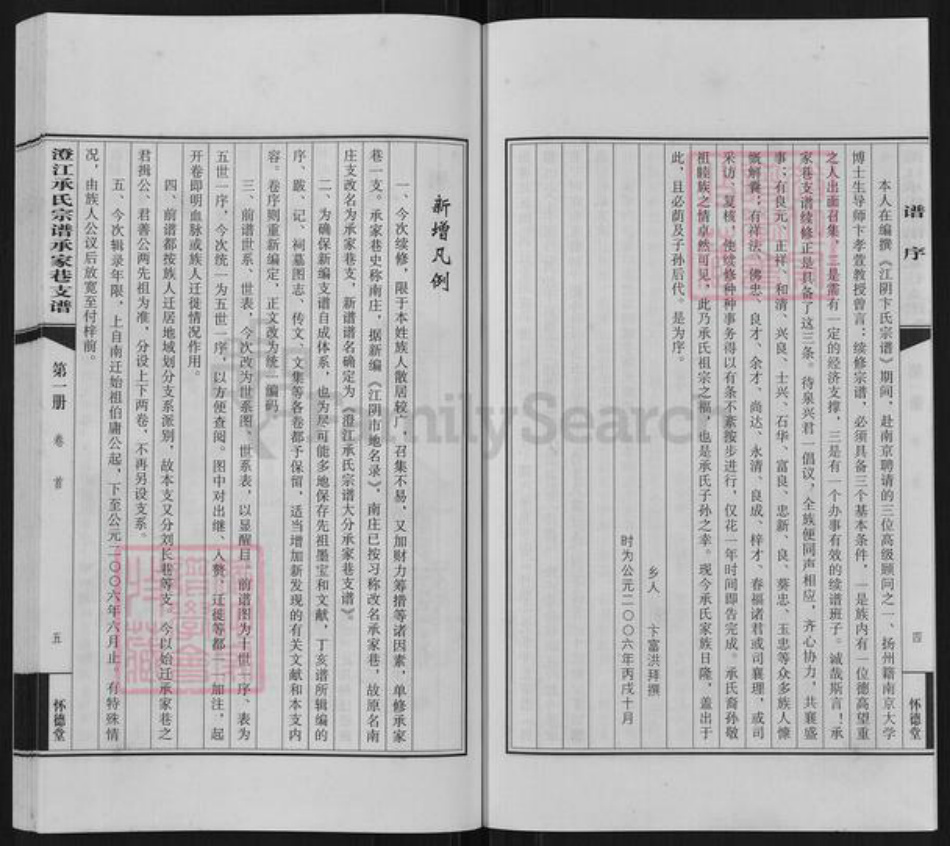 谱序
四
怀德堂
本人在编撰《江阴卞氏宗谱》期间，赴南京聘请的三位高级顾问之一、扬州籍南京大学
博士生导师卞孝萱教授曾言：续修宗谱，必须具备三个基本条件，一是族内有一位德高望重
之人出面召集，二是需有一定的经济支撑，三是有一个办事有效的续谱班子。诚哉斯言！承
家巷支谱续修正是具备了这三条。待泉兴君一倡议，全族便同声相应，齐心协力，共襄盛
事；有良元、正祥、和清、兴良、士兴、石华、富良、忠新、良、葵忠、玉忠等众多族人慷
慨解囊；有祥法、佛忠、良才、余才、尚达、永清、良成、梓才、春福诸君或司襄理，或司
采访、复核，使续修种种事务得以有条不紊按步进行，仅花一年时间即告完成。承氏裔孙敬
祖睦族之情卓然可见，此乃承氏祖宗之福，也是承氏子孙之幸。现今承氏家族日隆，盖出于
此，且必荫及子孙后代。是为序。
乡人 卞富洪拜撰
时为公元二〇〇六年丙戌十月
新增凡例
一、今次续修，限于本姓族人散居较广，召集不易，又加财力筹措等诸因素，单修承家
巷一支。承家巷史称南庄，据新编《江阴市地名录》，南庄已按习称改名承家巷，故原名南
庄支改名为承家巷支，新谱谱名确定为《澄江承氏宗谱大分承家巷支谱》。
二、为确保新编支谱自成体系，也为尽可能多地保存先祖墨宝和文献，丁亥谱所辑编的
序、跋、记、祠墓图志、传文、文集等各卷都予保留，适当增加新发现的有关文献和本支内
容。卷序则重新编定，正文改为统一编码。
三、前谱世系、世表，今次改为世系图、世系表，以显醒目。前谱图为十世一序、表为
五世一序，今次统一为五世一序，以方便查阅。图中对出继、入赘、迁徙等都一一加注，起
开卷即明血脉或族人迁徙情况作用。
四、前谱都按族人迁居地域划分支系派别，故本支又分刘长巷等支。今以始迁承家巷之
君揖公、君善公两先祖为准，分设上下两卷，不再另设支系。
五、今次辑录年限，上自南迁始祖伯庸公起，下至公元二〇〇六年六月止。有特殊情
况，由族人公议后放宽至付梓前。
澄江承氏宗谱承家巷支谱
第一册
卷首
五
怀德堂
FamilySearch